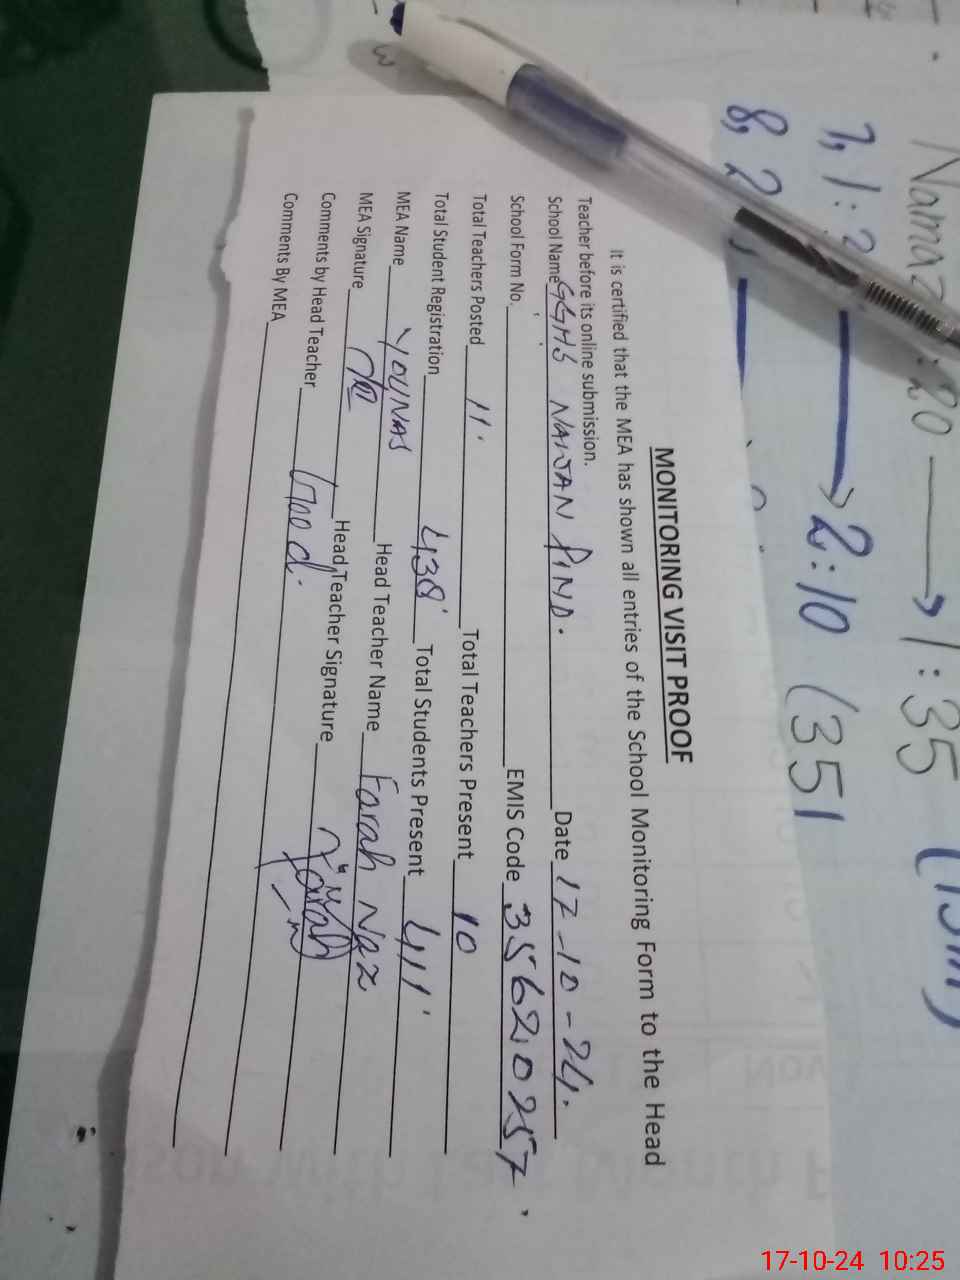 Namaz : 20 → 1 : 35 (15m)
→ 2:10 (35
8, 2
MONITORING VISIT PROOF
It is certified that the MEA has shown all entries of the School Monitoring Form to the Head
Teacher before its online submission.
School Name GGHS NAWAN PIND. Date 17-10-24.
School Form No. EMIS Code 35620257
Total Teachers Posted 11 Total Teachers Present 10
Total Student Registration 438 Total Students Present 411
MEA Name YOUNAS Head Teacher Name Farah Naz
MEA Signature Head Teacher Signature Farah
Comments by Head Teacher Good.
Comments By MEA
17-10-24 10:25